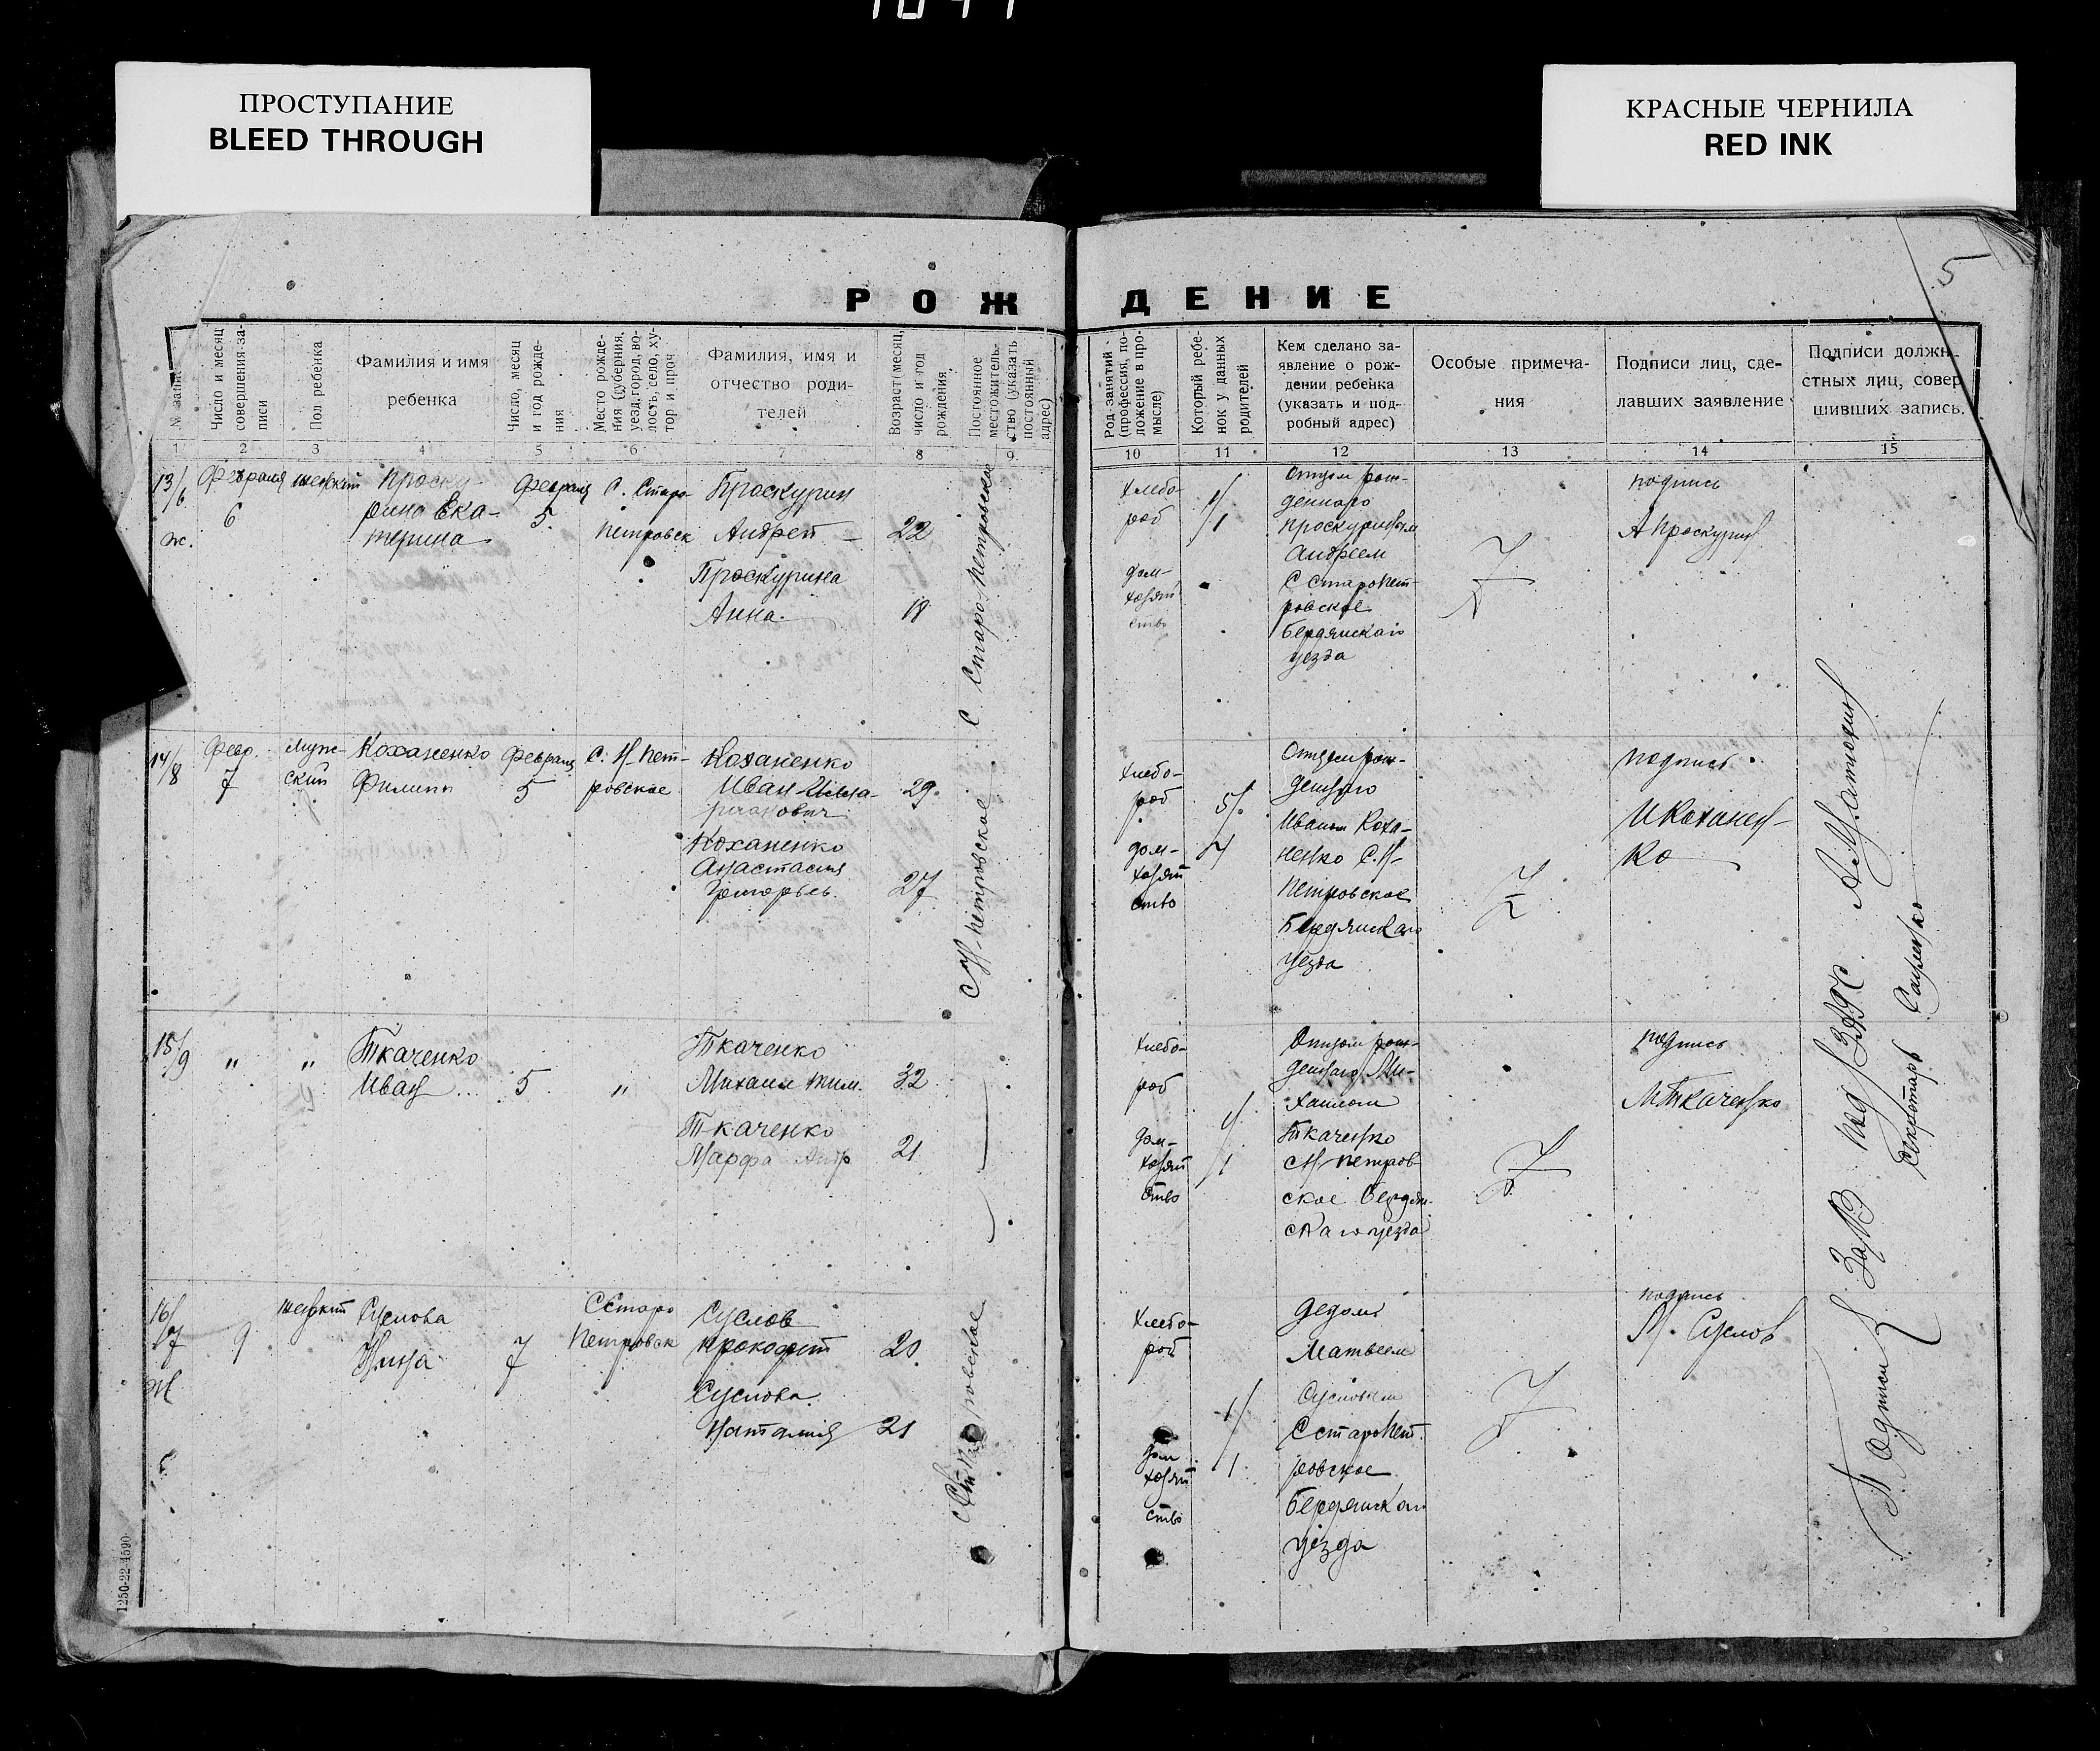 ПРОСТУПАНИЕ
BLEED THROUGH
КРАСНЫЕ ЧЕРНИЛА
RED INK
5
РОЖДЕНИЕ
Число и месяц совершения записи
Пол ребенка
Фамилия и имя
ребенка
Число, месяц и год рождения
Место рождения (губерния, уезд, город, волость, село, хутор и проч
Фамилия, имя и
отчество роди-
телей
Возраст: месяц, число и год рождения
Постоянное местожительство (указать постоянный адрес)
Род занятий (профессия, положение в промысле)
Который ребенок у данных родителей
Кем сделано за-
явление о рож-
дении ребенка
(указать и под-
робный адрес)
Особые примеча-
ния
Подписи лиц, сде-
лавших заявление
Подписи должн-
стных лиц, совер
шивших запись.
1 2 3 4 5 6 7 8 9 10 11 12 13 14 15
13/6
ж.
Февраля
6
женский
Проску-
рина Ека-
терина
Февраля
5.
С. Старо-
петровск
Проскурин
Андрей
22
Проскурина
Анна.
18
С. Старопетровское
хлебо-
роб
дом-
хозяй
ство
1/1
Отцом рож-
денного
Проскуриным
Андреем
С Старопет-
ровское
Бердянскаго
уезда
подпись
А Проскурин
14/8
Февр.
7
Муж-
ский
Коханенко
Филипп
Февраля
5
С. Н-Пет-
ровское
Коханенко
Иван
29.
Коханенко
Анастасия
Григорьев.
27
С Н-петровское
хлебо-
роб
дом-
хозяй
ство
5/.
4
Отцем рож-
денного
Иваном Коха-
ненко С. Н-
Петровское
Бердянскаго
уезда
подпись.
И Коханен-
ко
15/9
"
"
Ткаченко
Иван
5
"
Ткаченко
Михаил Тим.
32
Ткаченко
Марфа
21
хлебо-
роб
дом-
хозяй
ство
1/1
Отцом рож-
денного Ми-
хаилом
Ткаченко
с Н-петров-
ское Бердян-
скаго уезда
подпись
М Ткаченко
16/7
Ж
9
женский
Суслова
Нина
7
С Старо
Петровск
Суслов
Прокофий
20.
Суслова
Наталия
21
хлебо-
роб
дом
хозяй
ство
1/
1
дедом
Матвеем
Сусловым
С Старопет.
ровское
Бердянскаго
уезда
подпись
М. Суслов
Подписи { Зав
Секретарь
1250-22-4590